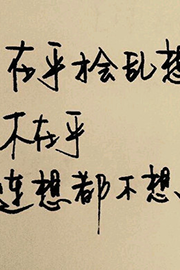 在乎会乱想
不在乎
连想都不想、